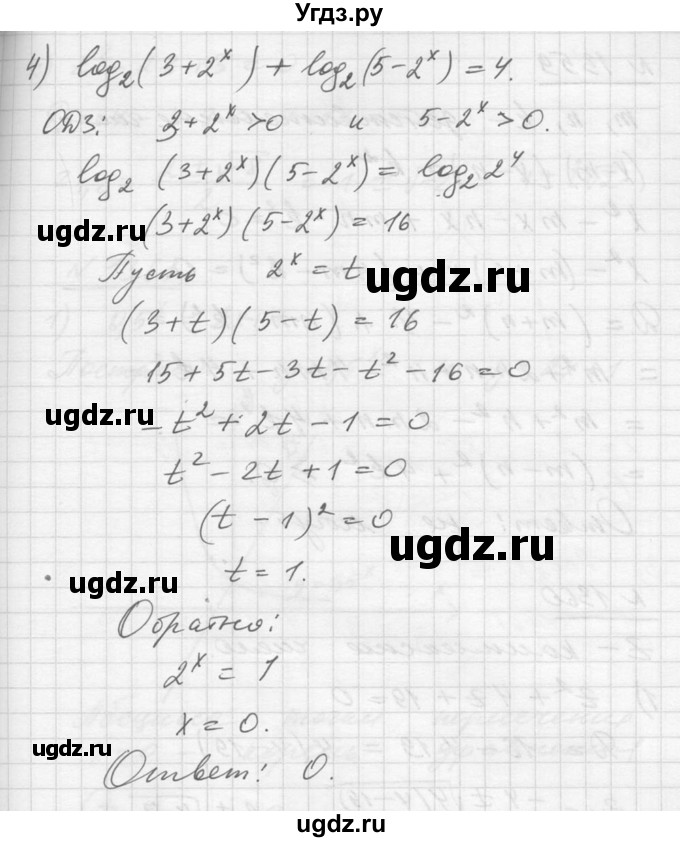 Угдз.ру
4) log₂(3+2ˣ)+log₂(5-2ˣ)=4.
ОДЗ: 3+2ˣ>0 и 5-2ˣ>0.
log₂ (3+2ˣ)(5-2ˣ)=log₂2⁴
ugdz.ru (3+2ˣ)(5-2ˣ)=16
Пусть 2ˣ=t ugdz.ru
(3+t)(5-t)=16
15+5t-3t-t²-16=0
ugdz.ru -t²+2t-1=0
t²-2t+1=0
(t-1)²=0 ugdz.ru
ugdz.ru t=1.
Обратно:
2ˣ=1
ugdz.ru x=0.
Ответ: 0.
ugdz.ru